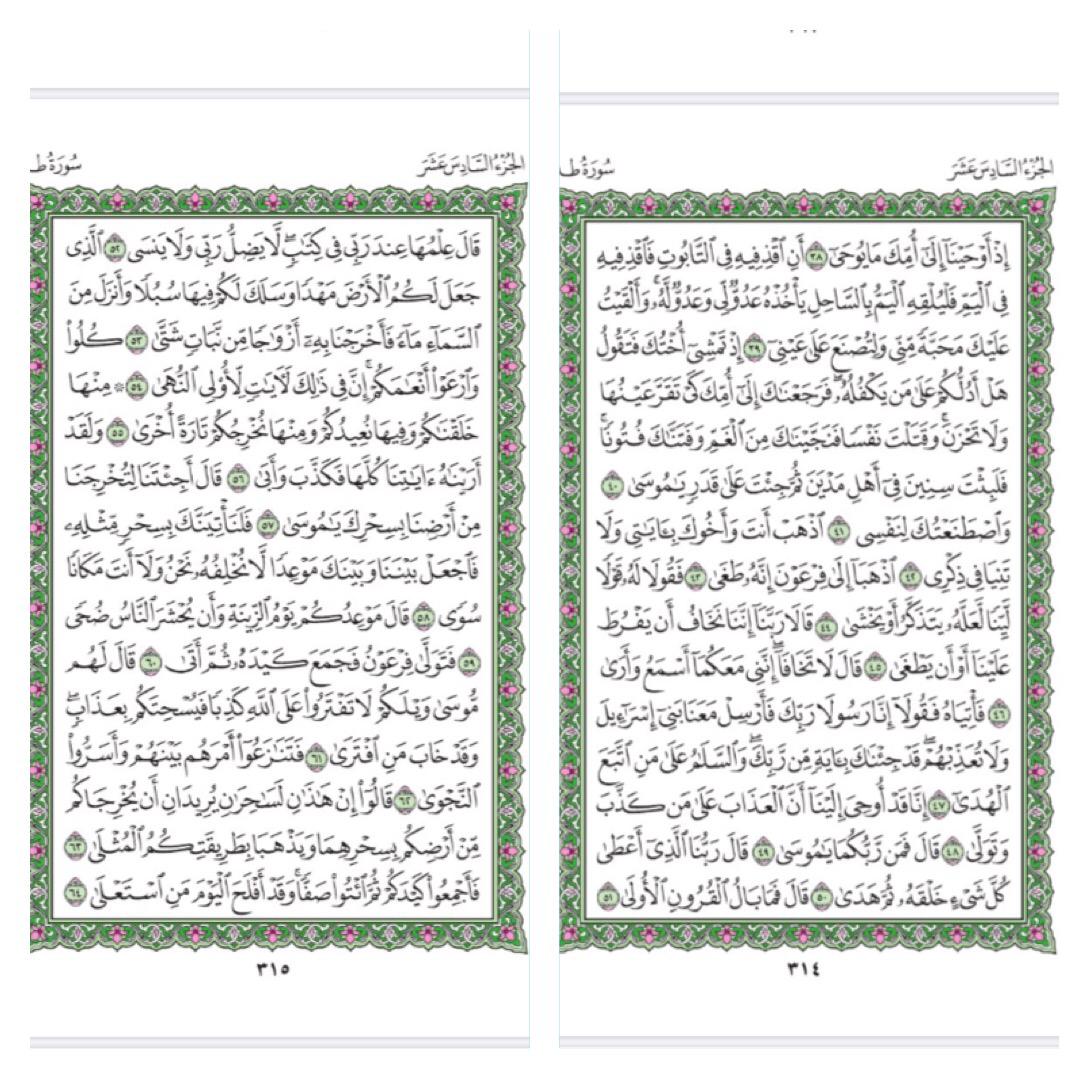 الجُزْءُ السَّادِسَ عَشَرَ
سُورَةُ ط
إِذْ أَوْحَيْنَآ إِلَىٰٓ أُمِّكَ مَا يُوحَىٰٓ ٣٨ أَنِ ٱقْذِفِيهِ فِى ٱلتَّابُوتِ فَٱقْذِفِيهِ
فِى ٱلْيَمِّ فَلْيُلْقِهِ ٱلْيَمُّ بِٱلسَّاحِلِ يَأْخُذْهُ عَدُوٌّ لِّى وَعَدُوٌّ لَّهُۥۚ وَأَلْقَيْتُ
عَلَيْكَ مَحَبَّةً مِّنِّى وَلِتُصْنَعَ عَلَىٰ عَيْنِىٓ ٣٩ إِذْ تَمْشِىٓ أُخْتُكَ فَتَقُولُ
هَلْ أَدُلُّكُمْ عَلَىٰ مَن يَكْفُلُهُۥۖ فَرَجَعْنَٰكَ إِلَىٰٓ أُمِّكَ كَىْ تَقَرَّ عَيْنُهَا
وَلَا تَحْزَنَۚ وَقَتَلْتَ نَفْسًا فَنَجَّيْنَٰكَ مِنَ ٱلْغَمِّ وَفَتَنَّٰكَ فُتُونًاۚ
فَلَبِثْتَ سِنِينَ فِىٓ أَهْلِ مَدْيَنَ ثُمَّ جِئْتَ عَلَىٰ قَدَرٍ يَٰمُوسَىٰ ٤٠
وَٱصْطَنَعْتُكَ لِنَفْسِى ٤١ ٱذْهَبْ أَنتَ وَأَخُوكَ بِـَٔايَٰتِى وَلَا
تَنِيَا فِى ذِكْرِى ٤٢ ٱذْهَبَآ إِلَىٰ فِرْعَوْنَ إِنَّهُۥ طَغَىٰ ٤٣ فَقُولَا لَهُۥ قَوْلًا
لَّيِّنًا لَّعَلَّهُۥ يَتَذَكَّرُ أَوْ يَخْشَىٰ ٤٤ قَالَا رَبَّنَآ إِنَّنَا نَخَافُ أَن يَفْرُطَ
عَلَيْنَآ أَوْ أَن يَطْغَىٰ ٤٥ قَالَ لَا تَخَافَآۖ إِنَّنِى مَعَكُمَآ أَسْمَعُ وَأَرَىٰ
٤٦ فَأْتِيَاهُ فَقُولَآ إِنَّا رَسُولَا رَبِّكَ فَأَرْسِلْ مَعَنَا بَنِىٓ إِسْرَٰٓءِيلَ
وَلَا تُعَذِّبْهُمْۖ قَدْ جِئْنَٰكَ بِـَٔايَةٍ مِّن رَّبِّكَۖ وَٱلسَّلَٰمُ عَلَىٰ مَنِ ٱتَّبَعَ
ٱلْهُدَىٰٓ ٤٧ إِنَّا قَدْ أُوحِىَ إِلَيْنَآ أَنَّ ٱلْعَذَابَ عَلَىٰ مَن كَذَّبَ
وَتَوَلَّىٰ ٤٨ قَالَ فَمَن رَّبُّكُمَا يَٰمُوسَىٰ ٤٩ قَالَ رَبُّنَا ٱلَّذِىٓ أَعْطَىٰ
كُلَّ شَىْءٍ خَلْقَهُۥ ثُمَّ هَدَىٰ ٥٠ قَالَ فَمَا بَالُ ٱلْقُرُونِ ٱلْأُولَىٰ ٥١
٣١٤
الجُزْءُ السَّادِسَ عَشَرَ
سُورَةُ ط
قَالَ عِلْمُهَا عِندَ رَبِّى فِى كِتَٰبٍۖ لَّا يَضِلُّ رَبِّى وَلَا يَنسَى ٥٢ ٱلَّذِى
جَعَلَ لَكُمُ ٱلْأَرْضَ مَهْدًا وَسَلَكَ لَكُمْ فِيهَا سُبُلًا وَأَنزَلَ مِنَ
ٱلسَّمَآءِ مَآءً فَأَخْرَجْنَا بِهِۦٓ أَزْوَٰجًا مِّن نَّبَاتٍ شَتَّىٰ ٥٣ كُلُوا۟
وَٱرْعَوْا۟ أَنْعَٰمَكُمْۗ إِنَّ فِى ذَٰلِكَ لَءَايَٰتٍ لِّأُو۟لِى ٱلنُّهَىٰ ٥٤ ۞ مِنْهَا
خَلَقْنَٰكُمْ وَفِيهَا نُعِيدُكُمْ وَمِنْهَا نُخْرِجُكُمْ تَارَةً أُخْرَىٰ ٥٥ وَلَقَدْ
أَرَيْنَٰهُ ءَايَٰتِنَا كُلَّهَا فَكَذَّبَ وَأَبَىٰ ٥٦ قَالَ أَجِئْتَنَا لِتُخْرِجَنَا
مِنْ أَرْضِنَا بِسِحْرِكَ يَٰمُوسَىٰ ٥٧ فَلَنَأْتِيَنَّكَ بِسِحْرٍ مِّثْلِهِۦ
فَٱجْعَلْ بَيْنَنَا وَبَيْنَكَ مَوْعِدًا لَّا نُخْلِفُهُۥ نَحْنُ وَلَآ أَنتَ مَكَانًا
سُوًى ٥٨ قَالَ مَوْعِدُكُمْ يَوْمُ ٱلزِّينَةِ وَأَن يُحْشَرَ ٱلنَّاسُ ضُحًى
٥٩ فَتَوَلَّىٰ فِرْعَوْنُ فَجَمَعَ كَيْدَهُۥ ثُمَّ أَتَىٰ ٦٠ قَالَ لَهُم
مُّوسَىٰ وَيْلَكُمْ لَا تَفْتَرُوا۟ عَلَى ٱللَّهِ كَذِبًا فَيُسْحِتَكُم بِعَذَابٍۖ
وَقَدْ خَابَ مَنِ ٱفْتَرَىٰ ٦١ فَتَنَٰزَعُوٓا۟ أَمْرَهُم بَيْنَهُمْ وَأَسَرُّوا۟
ٱلنَّجْوَىٰ ٦٢ قَالُوٓا۟ إِنْ هَٰذَٰنِ لَسَٰحِرَٰنِ يُرِيدَانِ أَن يُخْرِجَاكُم
مِّنْ أَرْضِكُم بِسِحْرِهِمَا وَيَذْهَبَا بِطَرِيقَتِكُمُ ٱلْمُثْلَىٰ ٦٣
فَأَجْمِعُوا۟ كَيْدَكُمْ ثُمَّ ٱئْتُوا۟ صَفًّاۚ وَقَدْ أَفْلَحَ ٱلْيَوْمَ مَنِ ٱسْتَعْلَىٰ ٦٤
٣١٥